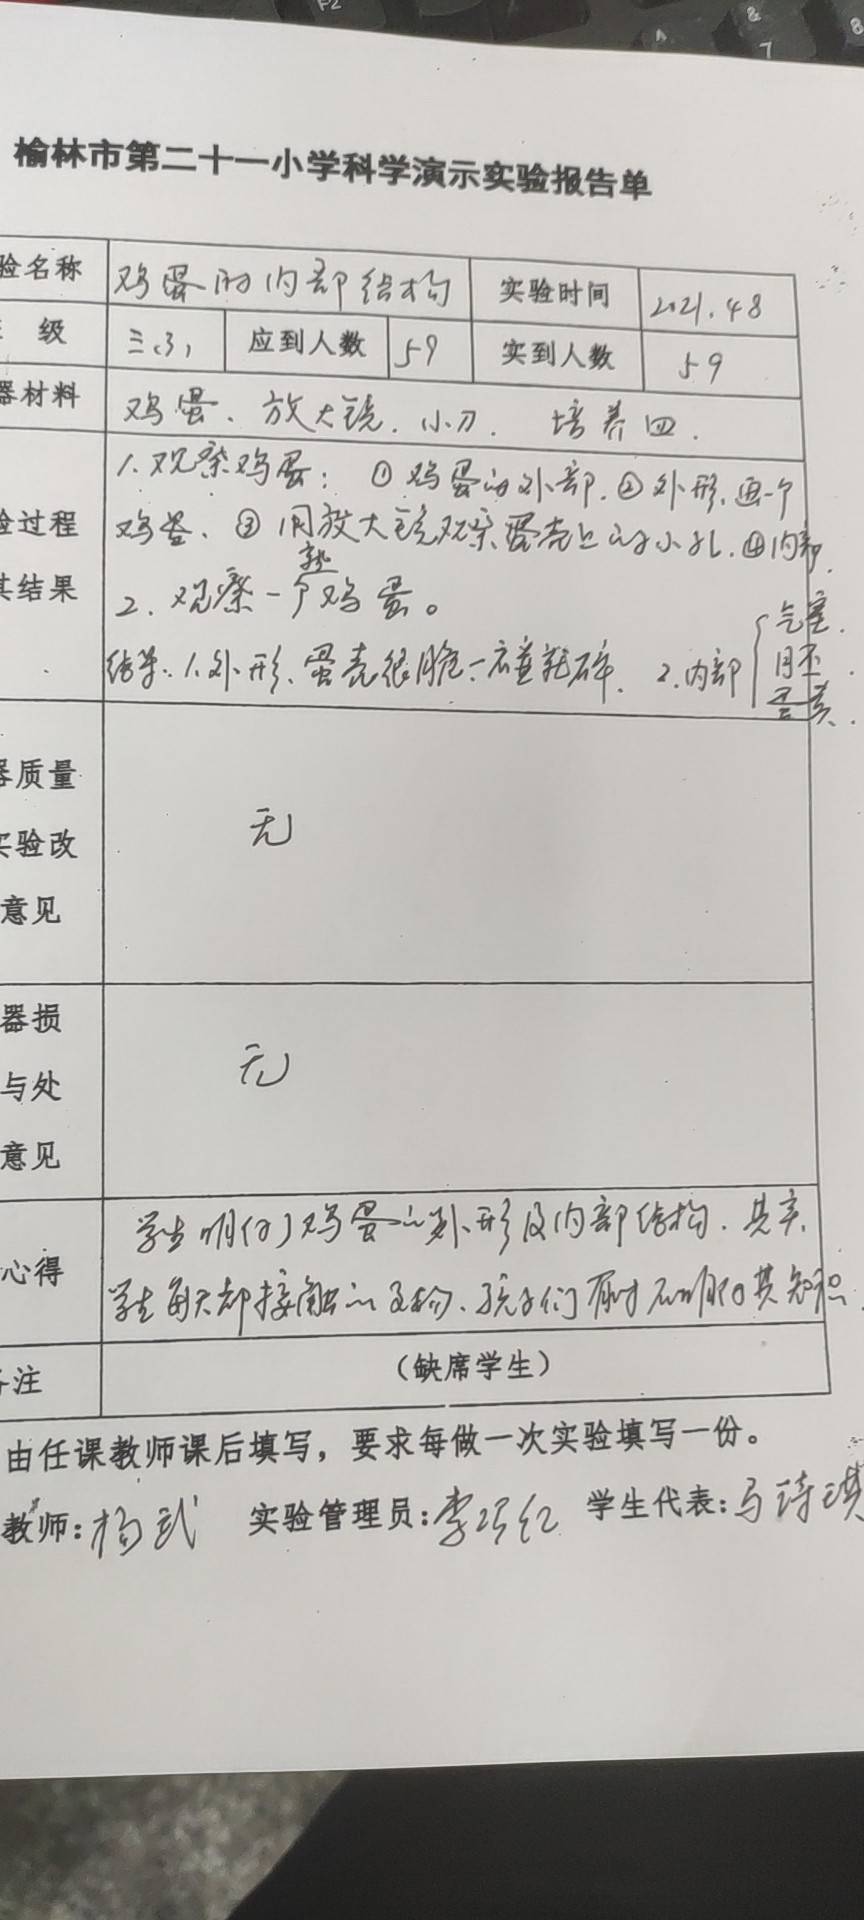 榆林市第二十一小学科学演示实验报告单
验名称 鸡蛋的内部结构 实验时间 2021.4.8
级 三(3) 应到人数 59 实到人数 59
器材料 鸡蛋、放大镜.小刀. 培养皿.
1.观察鸡蛋: ①鸡蛋的外部.②外形.画一个
验过程 鸡蛋、③用放大镜观察蛋壳上的小孔.④内部.
其结果 2.观察一个熟鸡蛋。
结果:1.外形、蛋壳很脆一碰就碎. 2.内部 气室. 胚. 蛋黄.
器质量
实验改 无
意见
器损
与处 无
意见
学生明白了鸡蛋的外形及内部结构.其实,
心得 学生每天都接触的食物、孩子们有时不明白其知识.
备注 (缺席学生)
由任课教师课后填写,要求每做一次实验填写一份。
教师:杨武 实验管理员:李巧红 学生代表:马诗琪